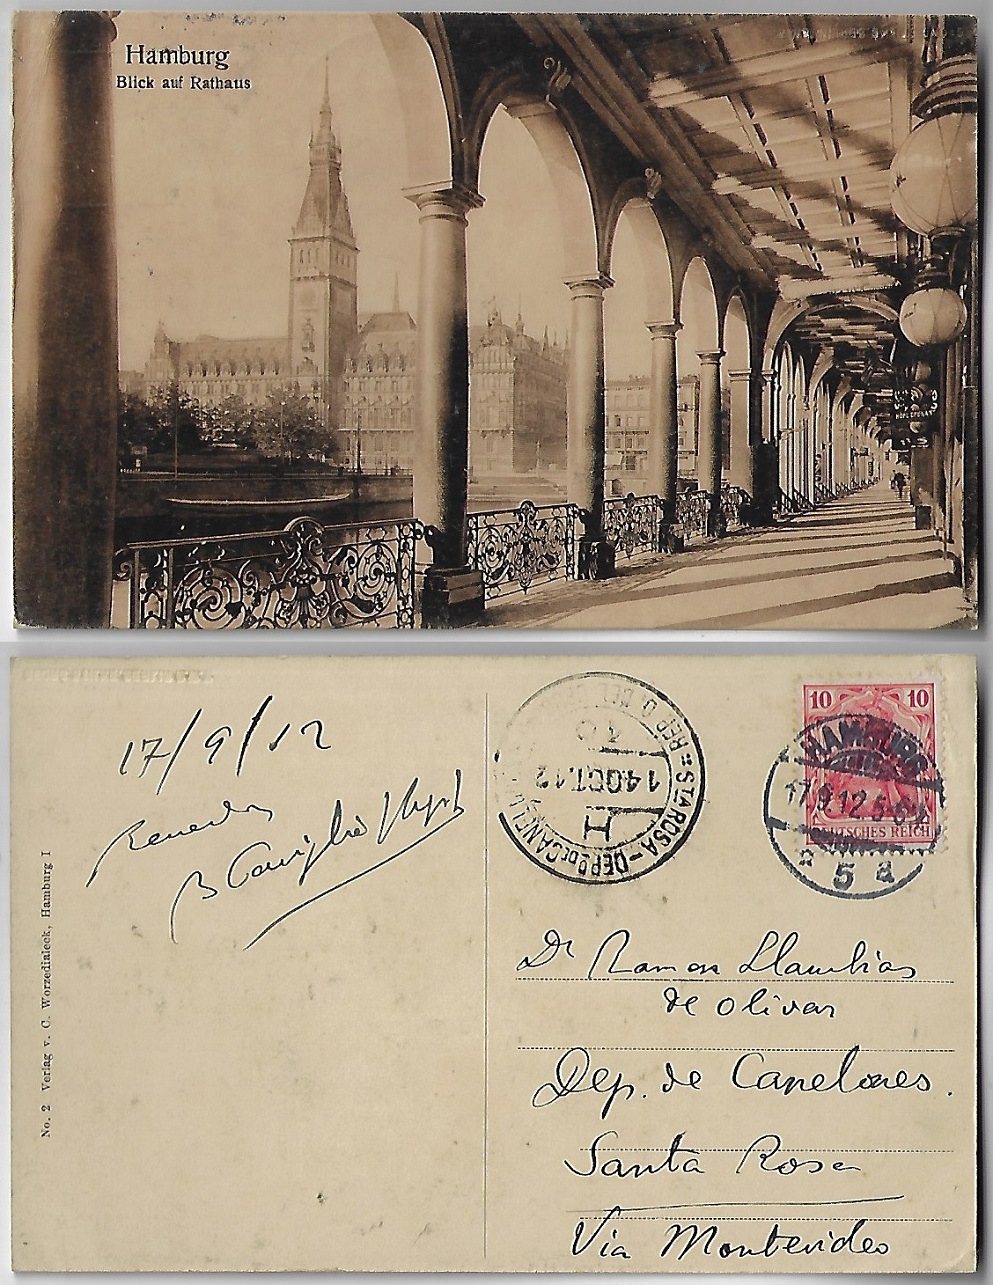 Hamburg
Blick auf Rathaus
17/9/12
No. 2 Verlag v. C. Worzedialeck, Hamburg I
STA ROSA - DEPO DE CANEL
REP. O. DEL
14 OCT. 12
H
10 10
DEUTSCHES REICH
HAMBURG
17.9.12.5-6
* 5 a
Dr Ramon Llambias
de Olivar
Dep. de Canelones.
Santa Rosa
Via Montevideo